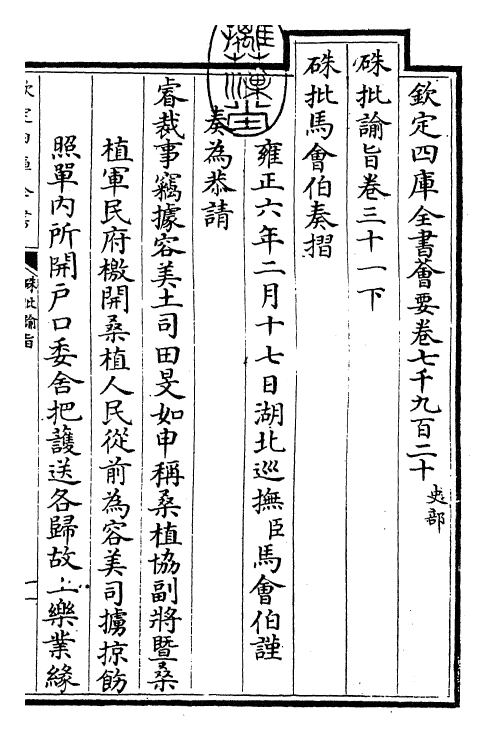 欽定四庫全書薈要卷七千九百二十 史部
硃批諭旨卷三十一下
硃批馬會伯奏摺
雍正六年二月十七日湖北巡撫臣馬會伯謹
奏為恭請
睿裁事竊據容美土司田旻如申稱桑植協副將暨桑
植軍民府檄開桑植人民從前為容美司擄掠飭
照單內所開戶口委舍把護送各歸故土樂業緣
硃批諭旨